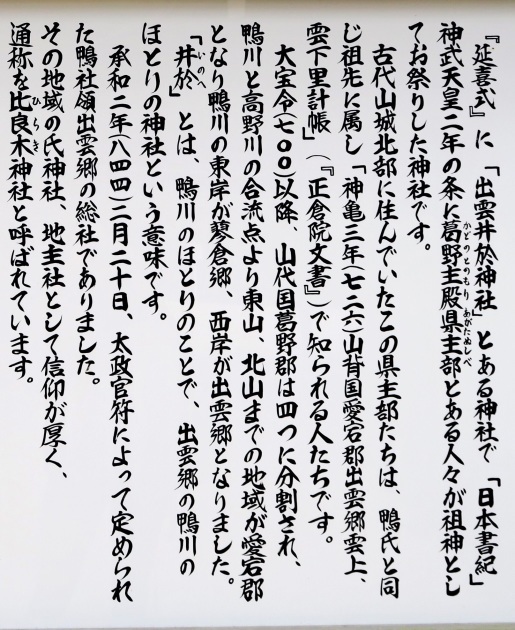 『延喜式』に「出雲井於神社」とある神社で「日本書紀」
神武天皇二年の条に葛野主殿県主部とある人々が祖神とし
かどのとのもり あがたぬしべ
てお祭りした神社です。
古代山城北部に住んでいたこの県主部たちは、鴨氏と同
じ祖先に属し「神亀三年(七二六)山背国愛宕郡出雲郷雲上、
雲下里計帳」(『正倉院文書』)で知られる人たちです。
大宝令(七〇〇)以降、山代国葛野郡は四つに分割され、
鴨川と高野川の合流点より東山、北山までの地域が愛宕郡
となり鴨川の東岸が蓼倉郷、西岸が出雲郷となりました。
「井於」とは、鴨川のほとりのことで、出雲郷の鴨川の
いのへ
ほとりの神社という意味です。
承和二年(八四四)三月二十日、太政官符によって定められ
た鴨社領出雲郷の総社でありました。
その地域の氏神社、地主社として信仰が厚く、
通称を比良木神社と呼ばれています。
ひらき